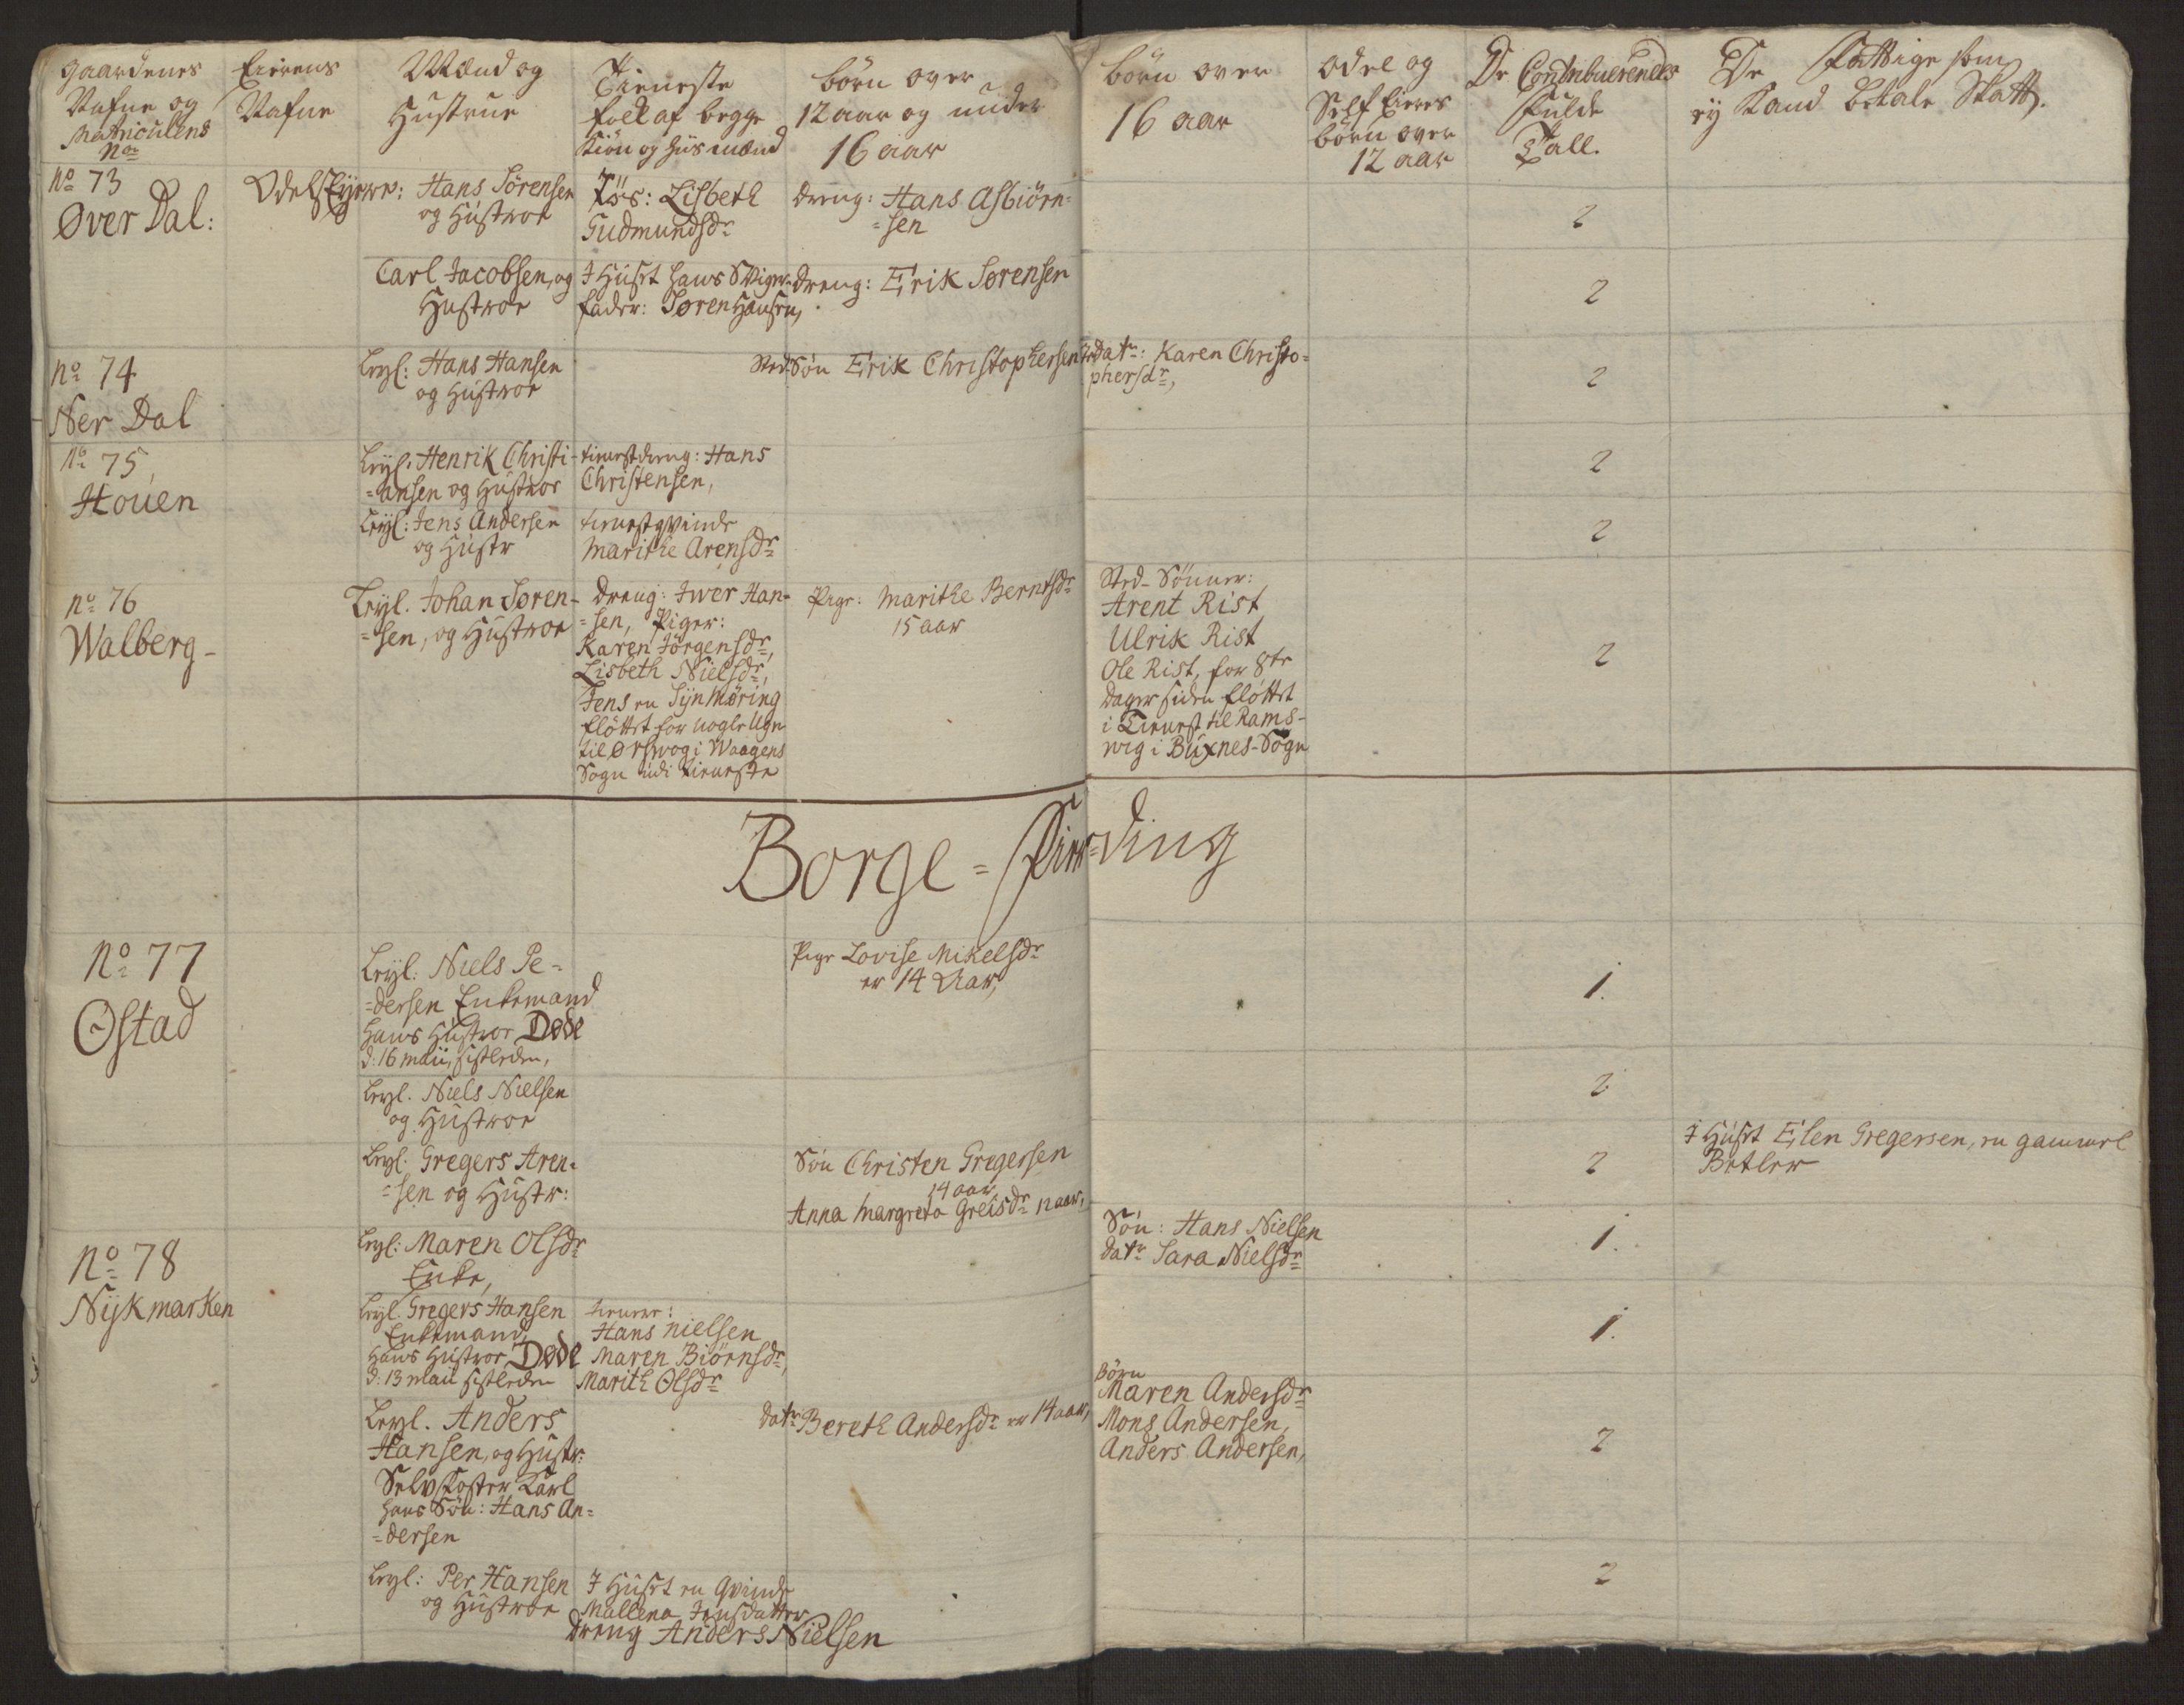 Gaardenes
Nafne og
Matriculens
No
Eierens
Nafne
Mænd og
Hustrue
Tieneste
folk af begge
Kiön og Huusmænd
börn over
12 aar og under
16 aar
börn over
16 aar
Odel og
Self Eieres
börn over
12 aar
De Contribuerendes
Fulde
Tall.
De Fattige som
ey kand betale Skatt.
No 73
Øver Dal:
Odels Eyere:
Hans Sörensen
og Hustroe
Tös: Lisbeth
Gudmundsdr
dreng: Hans Asbiörn=
=sen
2
Carl Jacobsen, og
Hustroe
I Huset hans Sviger-
fader: Søren Hansen,
dreng: Erik Sørensen
2
No 74
Ner Dal
Leyl: Hans Hansen
og Hustroe
Sted-Sön Erik Christophersen
datr: Karen Christo=
phersdr,
2
No 75,
Houen
Leyl: Henrik Christi-
=ansen og Hustroe
tienestdreng: Hans
Christensen,
2
Leyl: Jens Andersen
og Hustr
tienestqvinde
Marithe Arensdr
2
No 76
Walberg-
Leyl. Johan Soren-
=sen, og Hustroe
dreng: Iwer Han-
=sen, Piger:
Karen Jörgensdr,
Lisbeth Nielsdr,
Jens en Synmøring
fløttet for nogle Uger
til Ørswog i Waagens
Sogn udi tieneste
Pige: Marithe Berntsdr
15 aar
Sted-Sönner:
Arent Rist
Ulrik Rist
Ole Rist, for 8te
dager siden fløttet
i Tienest til Rams-
wig i Buxnes-Sogn
2
Borge=Fierding
No 77
Østad
Leyl: Niels Pe=
=dersen Enkemand
hans Hustroe Døde
d: 16 maii, sistleden,
Pige Lovise Mikelsdr
er 14 Aar,
1.
Leyl. Niels Nielsen
og Hustroe
2
Leyl. Gregers Aren=
=sen og Hustr:
Sön Christen Gregersen
14 aar,
Anna Margreta Greisdr 12 aar,
2
I Huset Elen Gregersen, en gammel
Betler
No 78
Nykmarken
Leyl: Maren Olsdr
Enke,
Sön: Hans Nielsen
datr Sara Nielsdr
1.
Leyl. Gregers Hansen
Enkemand,
Hans Hustroe Døde
d: 13 maii sistleden
tienere:
Hans Nielsen
Maren Biörnsdr,
Marith Olsdr
1.
Leyl. Anders
Hansen, og Hustr:
Selvkoster Karl
hans Sön: Hans An=
=dersen
datr Bereth Andersdr er 14 aar,
Börn
Maren Andersdr
Mons Andersen,
Anders Andersen,
2
Leyl: Per Hansen
og Hustroe
I Huset en Qvinde
Mallena Jensdatter
dreng Anders Nielsen
2